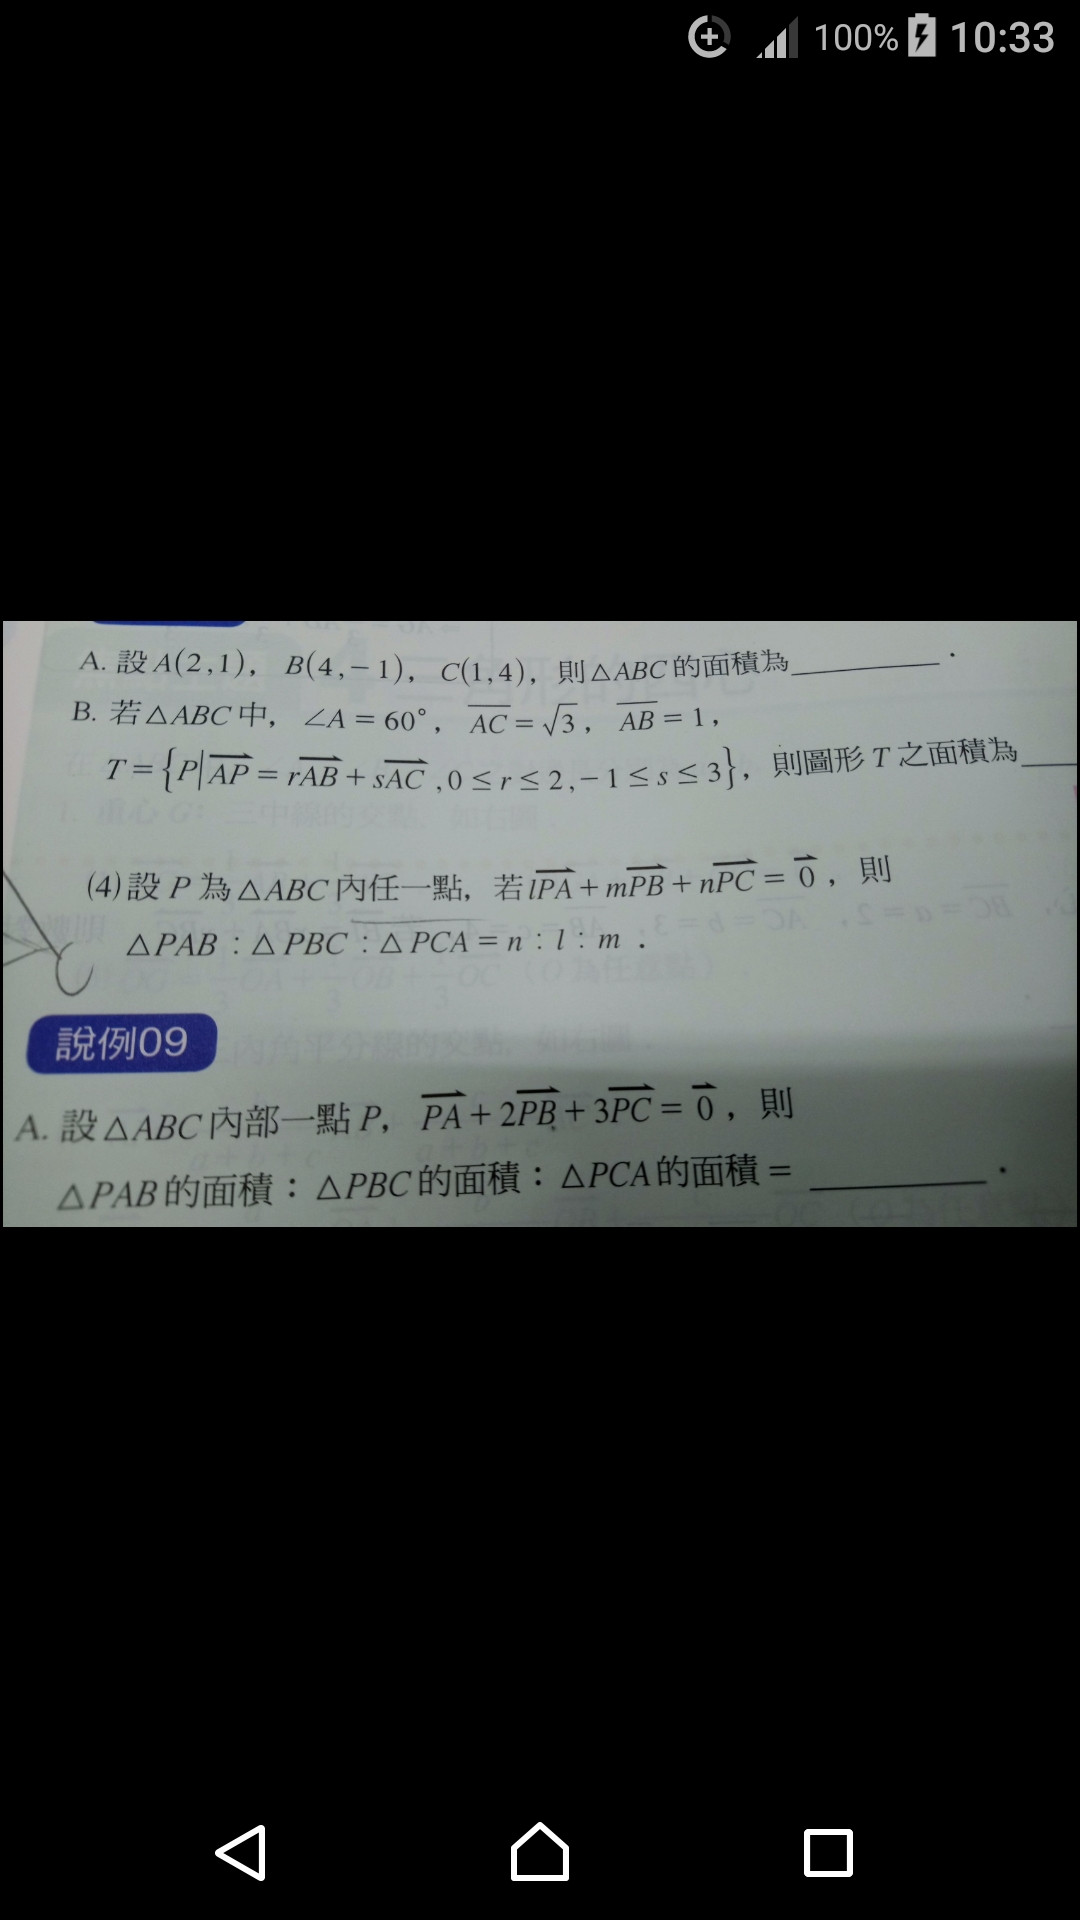 100% 10:33
A. 設 A(2,1), B(4,-1), C(1,4), 則△ABC 的面積為________.
B. 若△ABC 中, ∠A = 60°, \overline{AC} = √3, \overline{AB} = 1,
T = {P | \overrightarrow{AP} = r\overrightarrow{AB} + s\overrightarrow{AC}, 0 ≤ r ≤ 2, -1 ≤ s ≤ 3}, 則圖形 T 之面積為____
(4)設 P 為△ABC 內任一點, 若 l\overrightarrow{PA} + m\overrightarrow{PB} + n\overrightarrow{PC} = \overrightarrow{0}, 則
△PAB : △PBC : △PCA = n : l : m .
說例09
A. 設△ABC 內部一點 P, \overrightarrow{PA} + 2\overrightarrow{PB} + 3\overrightarrow{PC} = \overrightarrow{0}, 則
△PAB 的面積：△PBC 的面積：△PCA 的面積 = ________.